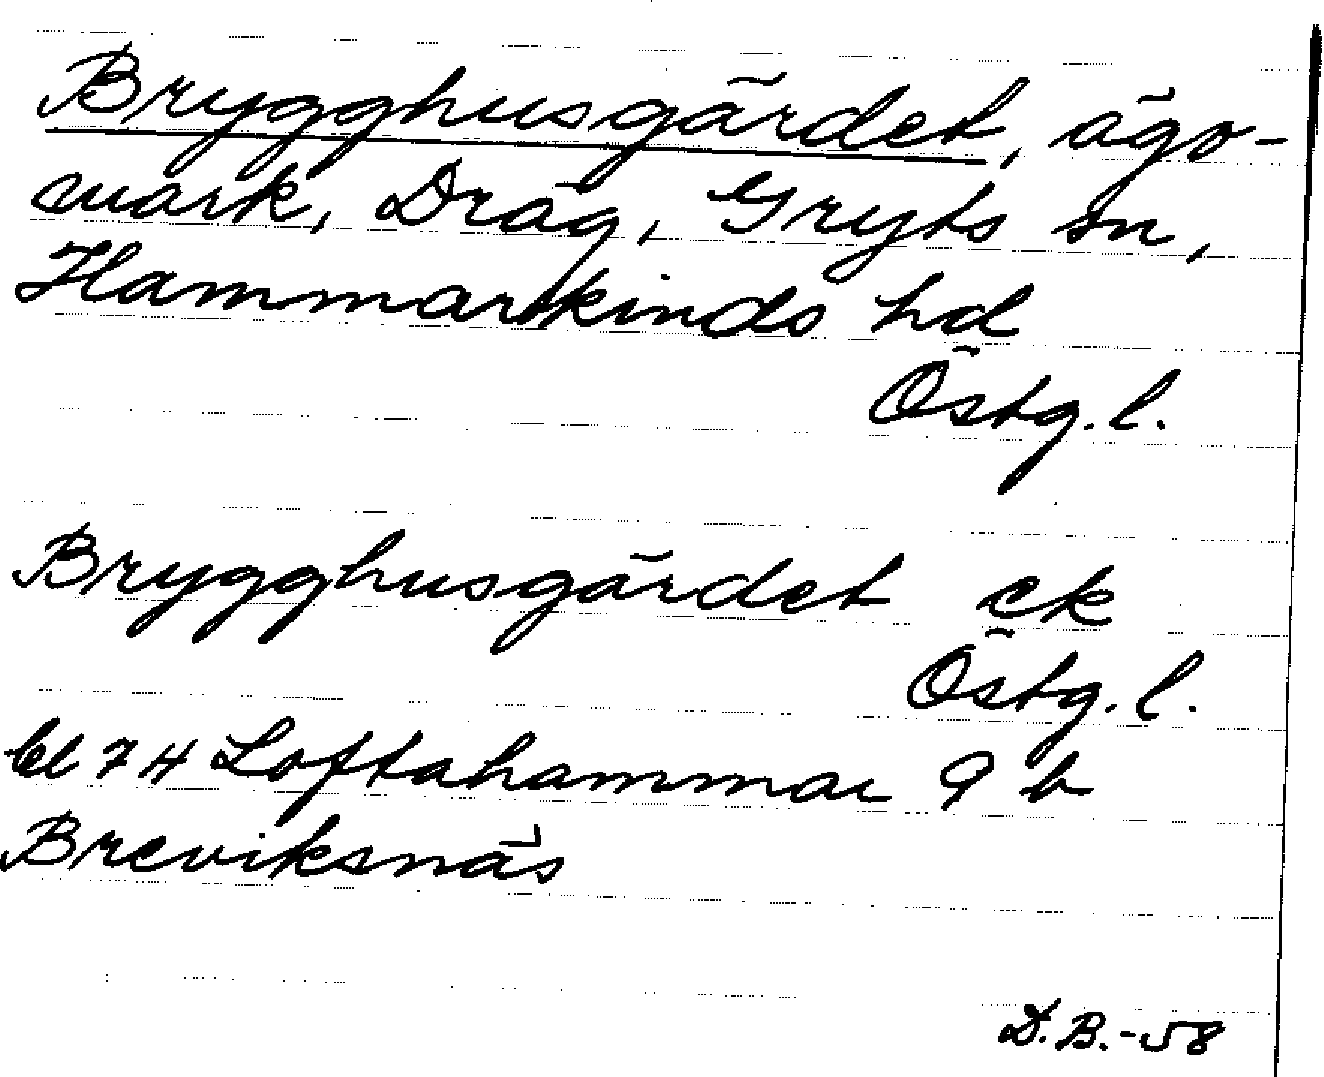 Brygghusgärdet, ägo-
mark, Dräg, Gryts sn,
Hammarkinds hd
Östg. l.
Brygghusgärdet ek
Östg. l.
bl 7 H Loftahammar 9 b
Breviksnäs
D.B.-58